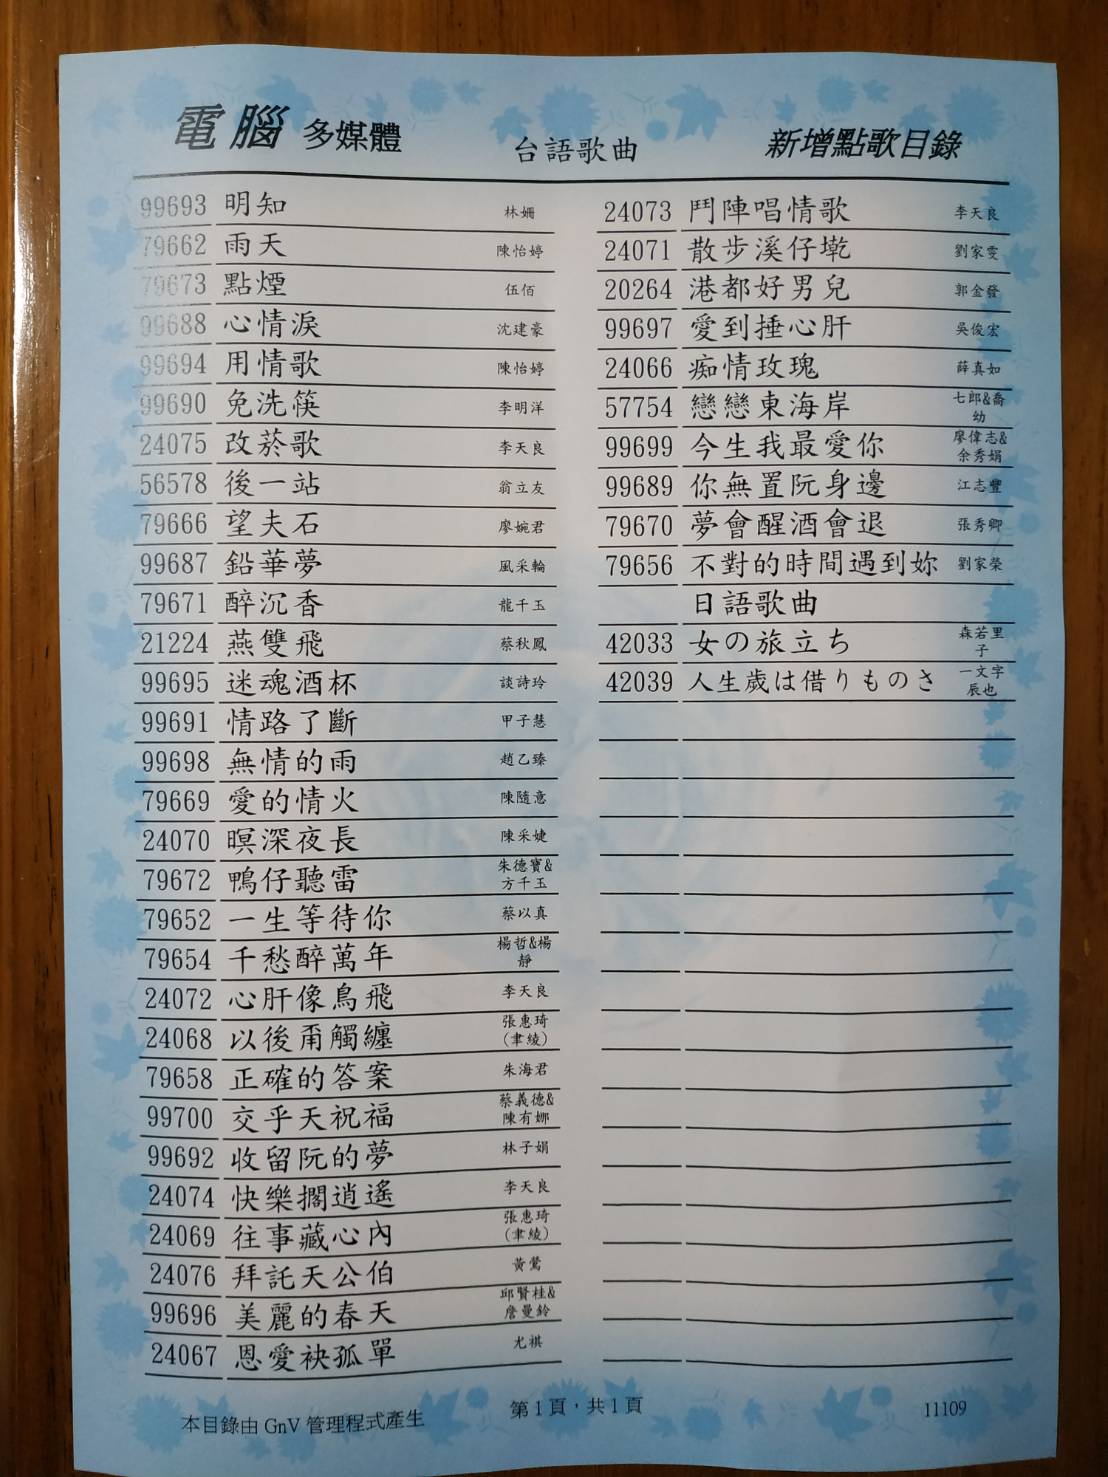 電腦 多媒體 台語歌曲 新增點歌目錄
99693 明知 林姍
79662 雨天 陳怡婷
79673 點煙 伍佰
99688 心情淚 沈建豪
99694 用情歌 陳怡婷
99690 免洗筷 李明洋
24075 改菸歌 李天良
56578 後一站 翁立友
79666 望夫石 廖婉君
99687 鉛華夢 風采輪
79671 醉沉香 龍千玉
21224 燕雙飛 蔡秋鳳
99695 迷魂酒杯 談詩玲
99691 情路了斷 甲子慧
99698 無情的雨 趙乙臻
79669 愛的情火 陳隨意
24070 暝深夜長 陳采婕
79672 鴨仔聽雷 朱德寶&
方千玉
79652 一生等待你 蔡以真
79654 千愁醉萬年 楊哲&楊
靜
24072 心肝像鳥飛 李天良
24068 以後甭觸纏 張惠琦
(聿綾)
79658 正確的答案 朱海君
99700 交乎天祝福 蔡義德&
陳有娜
99692 收留阮的夢 林子娟
24074 快樂擱逍遙 李天良
24069 往事藏心內 張惠琦
(聿綾)
24076 拜託天公伯 黃鶯
99696 美麗的春天 邱賢桂&
詹曼鈴
24067 恩愛袂孤單 尤祺
24073 鬥陣唱情歌 李天良
24071 散步溪仔墘 劉家雯
20264 港都好男兒 郭金發
99697 愛到捶心肝 吳俊宏
24066 痴情玫瑰 薛真如
57754 戀戀東海岸 七郎&喬
幼
99699 今生我最愛你 廖偉志&
余秀娟
99689 你無置阮身邊 江志豐
79670 夢會醒酒會退 張秀卿
79656 不對的時間遇到妳 劉家榮
日語歌曲
42033 女の旅立ち 森若里
子
42039 人生歲は借りものさ 一文字
辰也
本目錄由 GnV 管理程式產生 第1頁，共1頁 11109